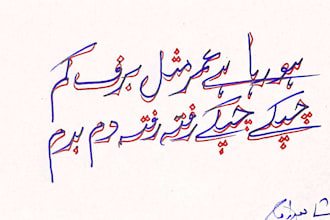 ہو رہا ہے عمر مثل برف کم
چپکے چپکے رفتہ رفتہ دم بدم